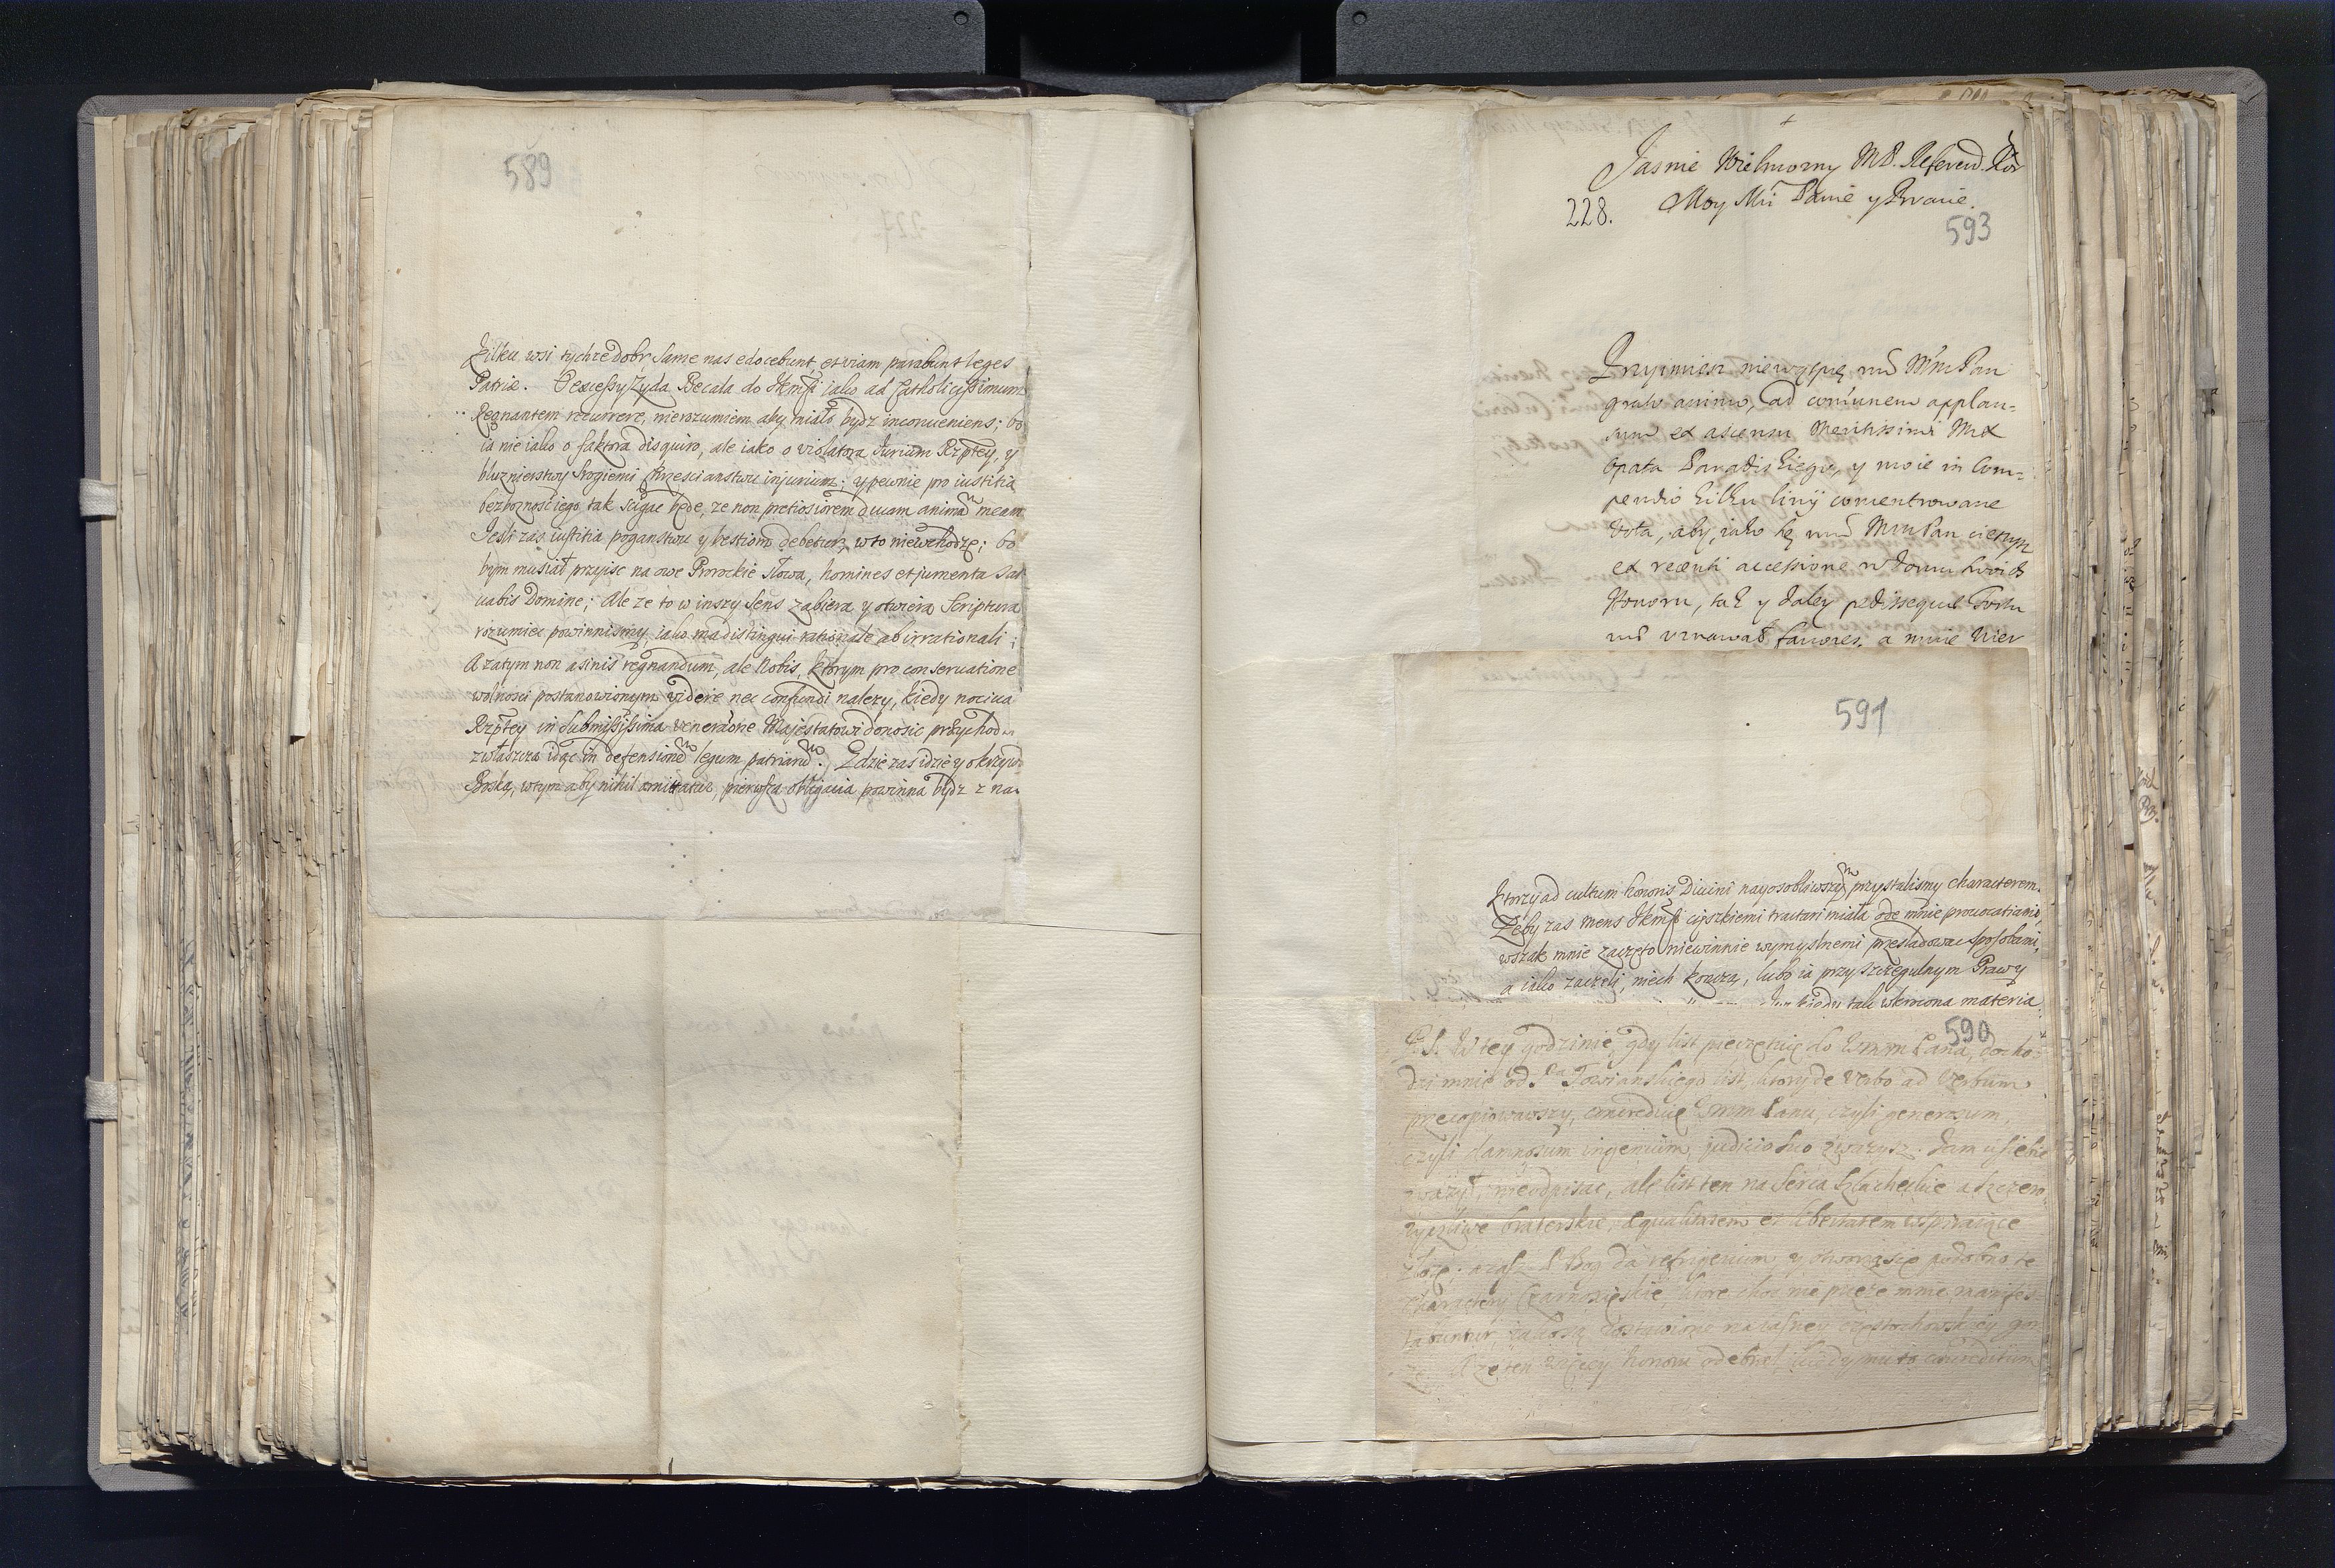 589
kilku wsi tychze dobr same nas edocebunt, et viam parabunt leges
Patriæ. Ocæcessy Zyda Becala do Jkmsci iako ad Catholicissimum
Regnantem recurrere, nierozumiem aby miało bydz inconueniens; bo
ia nie iako o faktora disquiro, ale iako o violatora Jurium Rzptey, y
bluznierstwy srogiemi Chrzescianstwu injurium; y pewnie pro iustitia
bezboznosci iego tak scigac będe, ze non pretiosiorem ducam animam meam
Jesli zas iustitia poganstwu y bestiom debetur, w to niewchodzę; bo
bym musiał przyisc na owe Prorockie słowa, homines et jumenta sal
uabis Domine; Ale ze to w inszy sens zabiera y otwiera Scriptura
rozumiec powinnismy, iako ma distingui rationale ab irrationali;
A zatym non asinis regnandum, ale Nobis, ktorym pro conseruatione
wolnosci postanowionym videre nec confundi nalezy, kiedy nociua
Rzptey in submississima veneraõne Majestatowi donosic przychod
zwłaszcza idąc in defensionem legum patriarum. Gdzie zas idzie y o krzywd
Boską, w tym aby nihil omittatur, pierwsza obligacia powinna bydz z na
Jasnie Wielmozny MP. Referend. Kor
228. Moy Mci Panie y Bracie.
593
Przyimiesz niewątpię WMM Pan
grato animo, ad com̃unem applau-
sum ex ascensu Meritissimi
Opata Paradiskiego, y moie in Com-
pendio kilku linij concentrowane
Vota, aby, iako się WMM Pan cieszysz
ex recenti accessione w Domu swoich
Honoru, tak y daley
uznawał fauores. a mnie
591
ktorzy ad cultum honoris Diuini nayosobliwszym przystalismy characterem.
Zeby zas mens Jkmsci cięszkiemi tractari miała ode mnie prouocatiami,
wszak mnie zaczęto niewinnie wymyslnemi przesladowac sposobami,
a iako zaczeli, niech konczą, lubo ia przy szczegulnym Prawy
kiedy tak wkroczona materia
590
P.S. W tey godzinie, gdy list pieczętuię do Wmm Pana, docho-
dzi mnie od Pa Towianskiego list, ktory de verbo ad verbum
przecopiowawszy, concreduię Wmm Panu, czyli generosum,
czyli damnosum ingenium, judicio suo zwazysz. Jam u siebie
zwazył, nieodpisac, ale list ten na serca szlacheckie a szczero
zyczliwe braterskie, æqualitatem et libertatem wspieraiące
złozę; azasz P. Bog da refrigerium, y otworzą się podobno te
charactery Czarnoxięskie, ktore choc nie piszę mnie, manifes-
tabuntur, iako są zostawione na iasney częstochowskiey gó-
rze. A ze ten